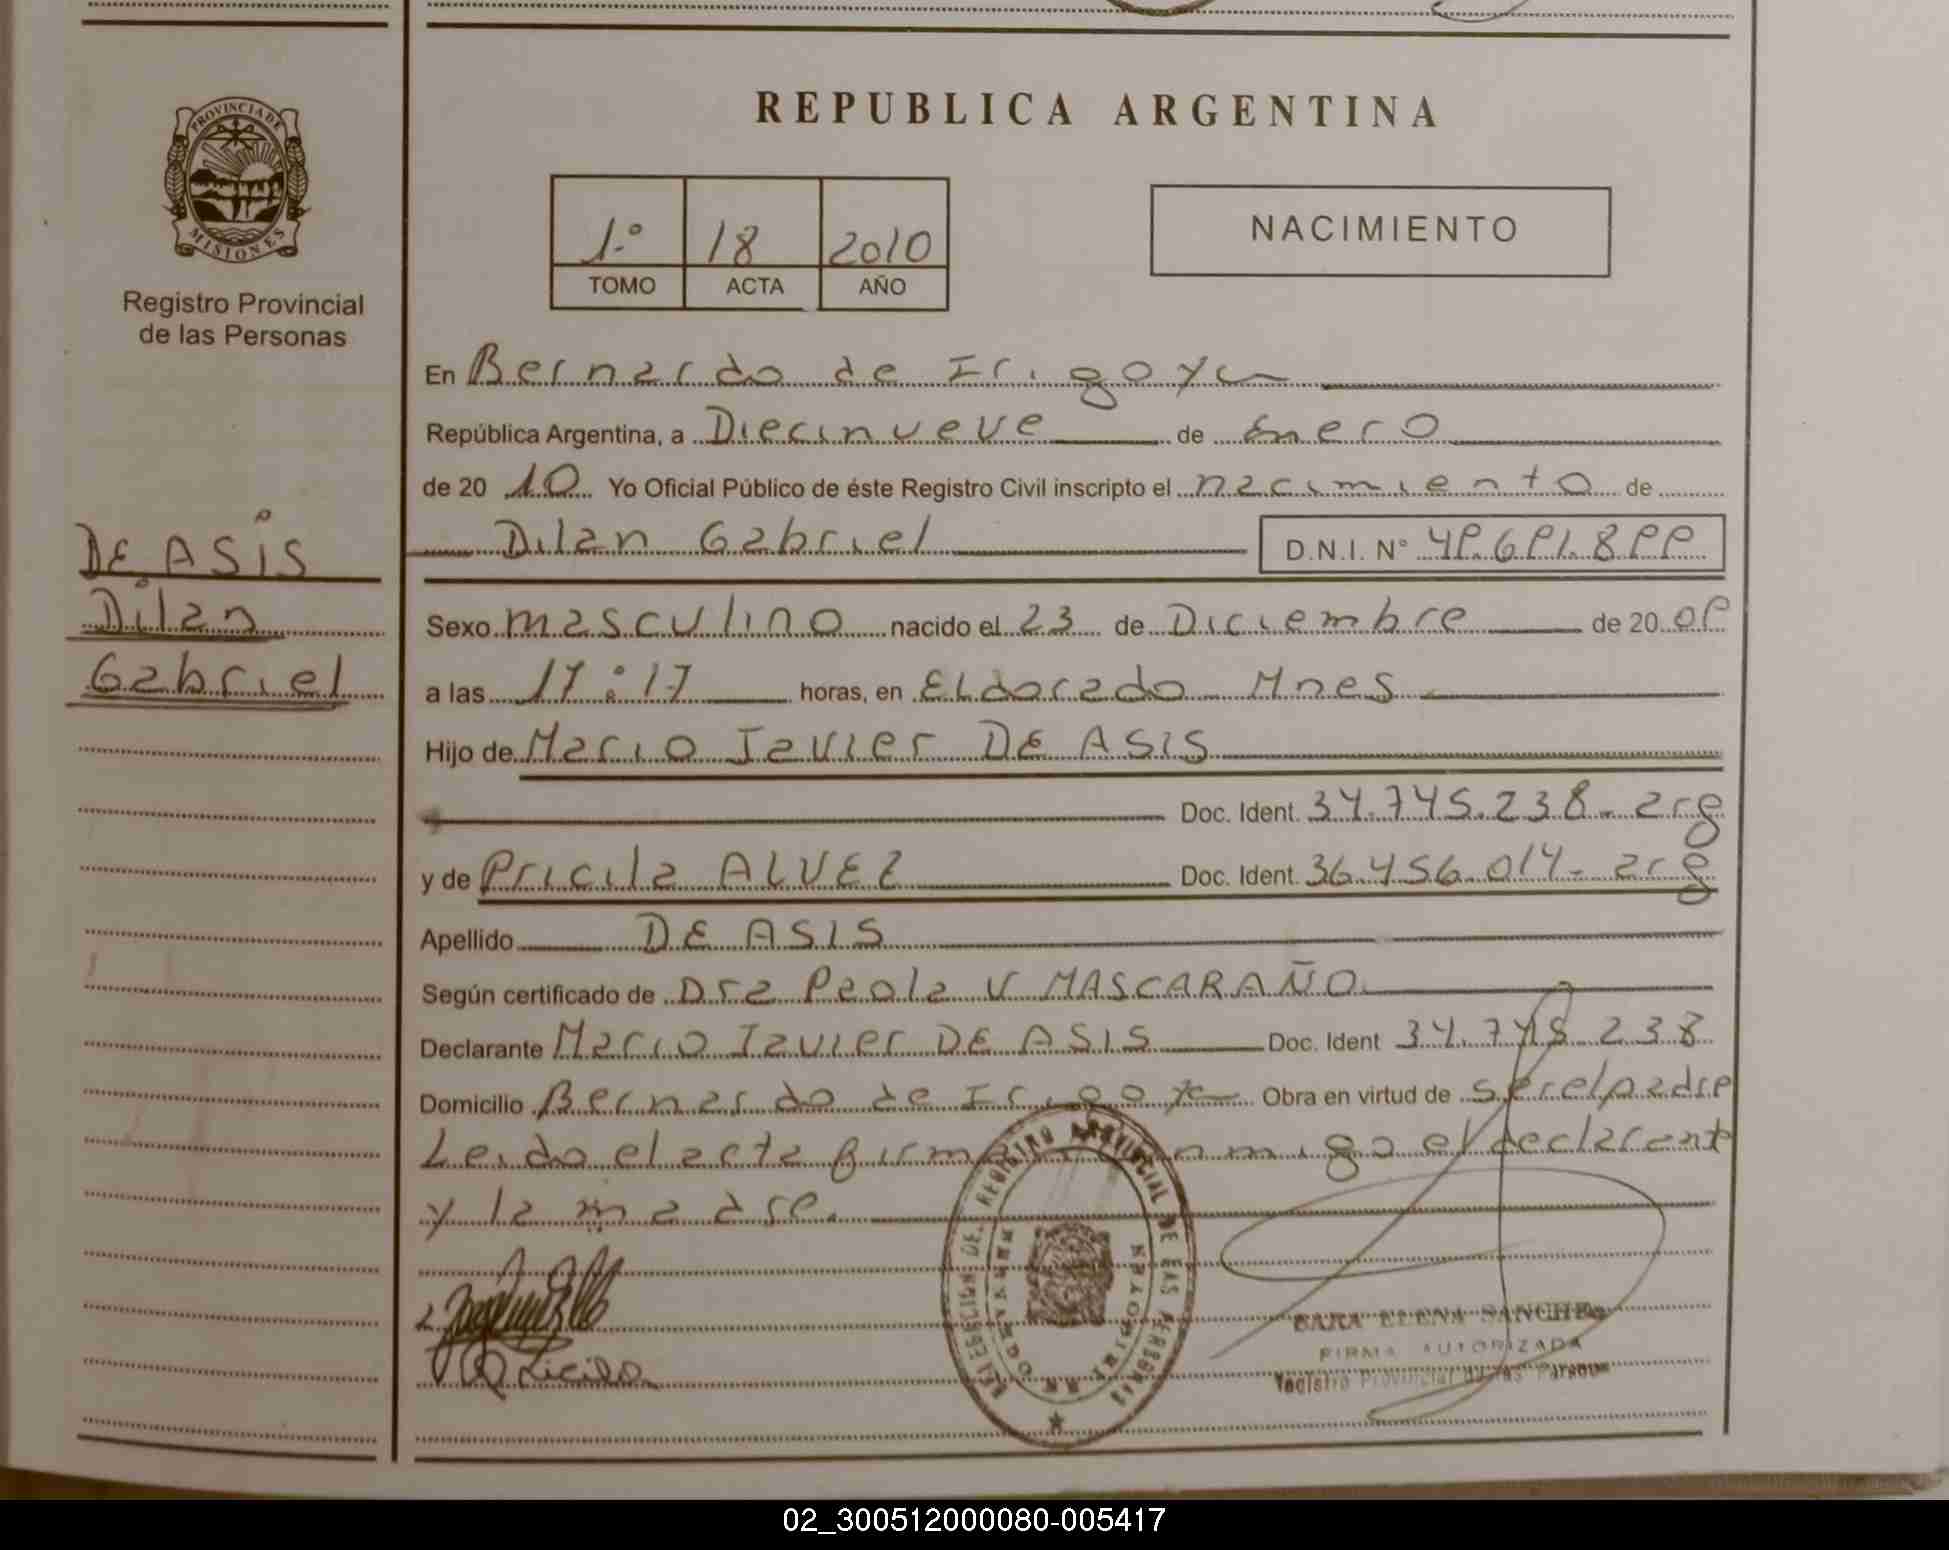 PROVINCIA DE
MISIONES
Registro Provincial
de las Personas
DE ASIS
Dilan
Gabriel
REPUBLICA ARGENTINA
1.º 18 2010
TOMO ACTA AÑO
NACIMIENTO
En Bernardo de Irigoyen
República Argentina, a Diecinueve de Enero
de 20 10 Yo Oficial Público de éste Registro Civil inscripto el nacimiento de
Dilan Gabriel D.N.I. N° 49.691.899
Sexo masculino nacido el 23 de Diciembre de 20 09
a las 17:17 horas, en Eldorado Mnes
Hijo de Mario Javier DE ASIS
Doc. Ident. 34.745.238 - arg
y de Pricila ALVEZ Doc. Ident. 36.456.014 - arg
Apellido DE ASIS
Según certificado de Dra Paola V MASCARAÑO
Declarante Mario Javier DE ASIS Doc. Ident 34.745.238
Domicilio Bernardo de Irigoyen Obra en virtud de ser el padre
Leido el acta firman conmigo el declarante
y la madre.
REGISTRO PROVINCIAL DE LAS PERSONAS
SARA ELENA SANCHEZ
FIRMA AUTORIZADA
Registro Provincial de las Personas
Pricila
02_300512000080-005417